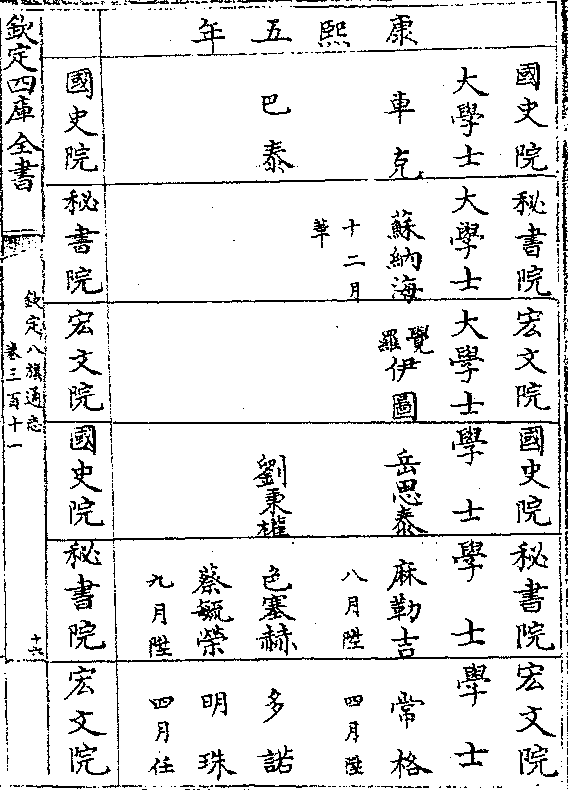 康熙五年
國史院
大學士
車克
巴泰
秘書院
大學士
蘇納海
十二月
革
宏文院
大學士
覺羅
伊圖
國史院
學士
岳思泰
劉秉權
秘書院
學士
麻勒吉
八月陞
色塞赫
蔡毓榮
九月陞
宏文院
學士
常格
四月陞
多諾
明珠
四月任
國史院
秘書院
宏文院
國史院
秘書院
宏文院
欽定四庫全書
欽定八旗通志
卷三百十一
十六